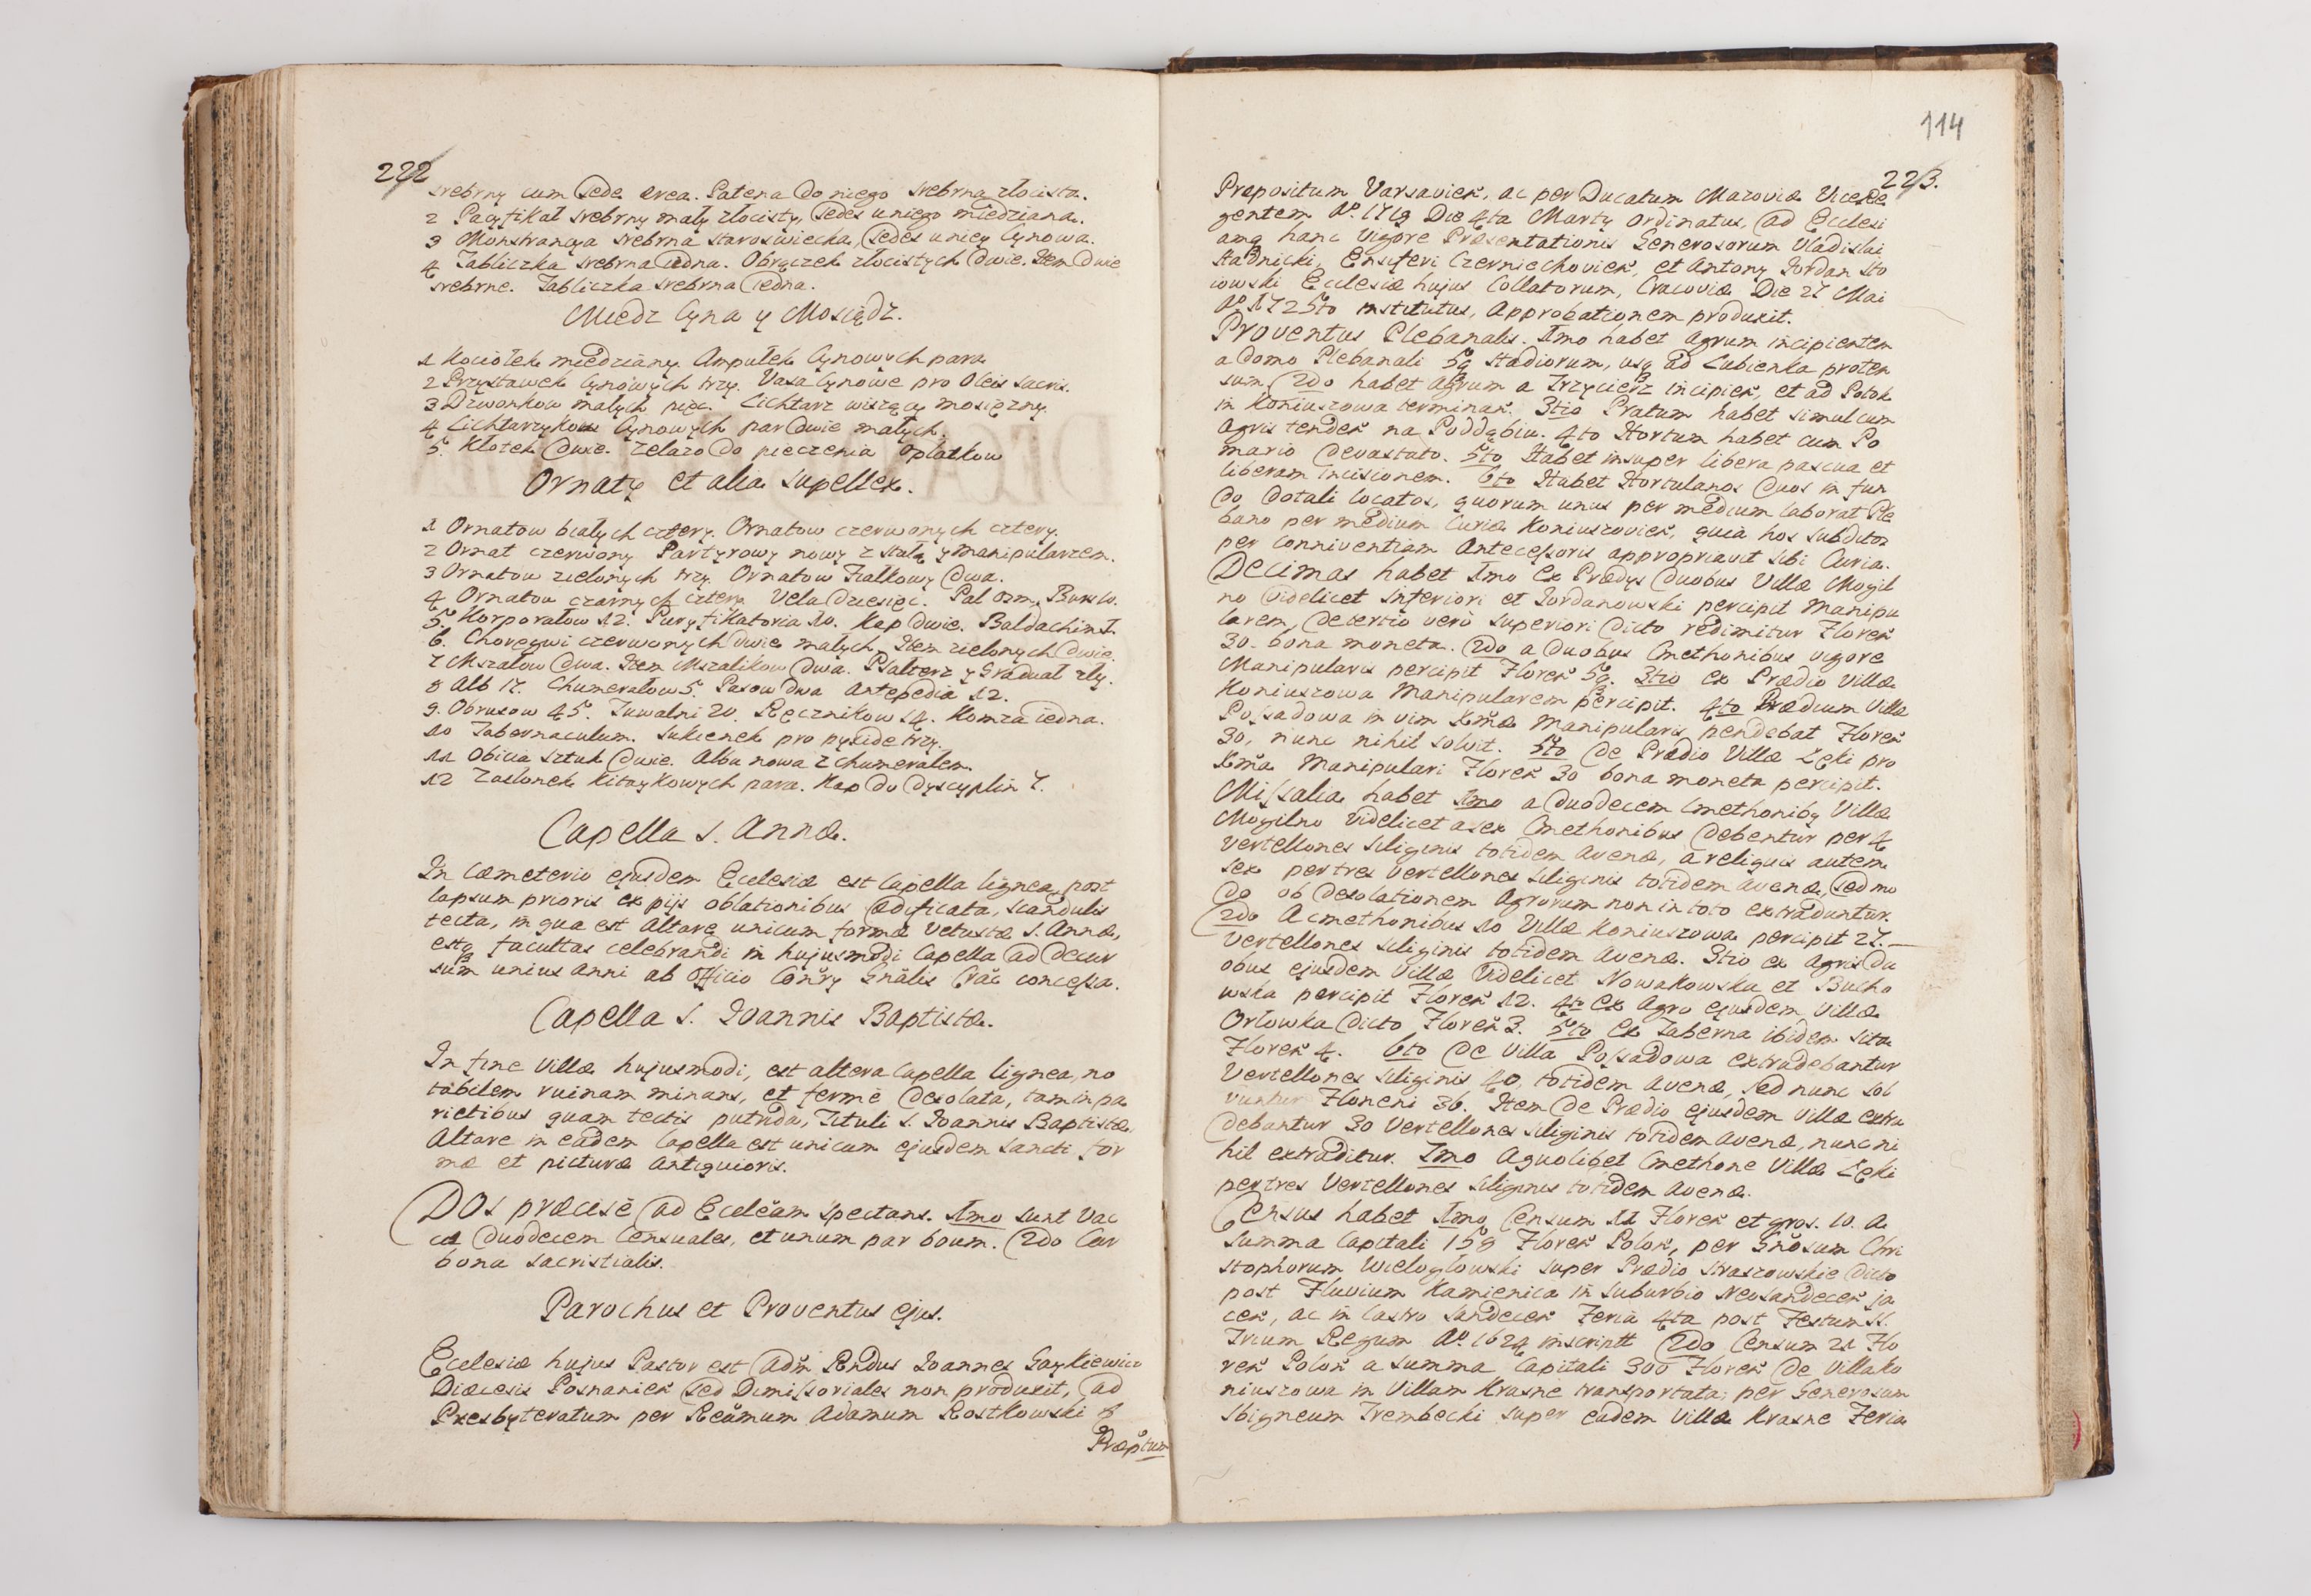 222
srebrny cum sede ærea. Patena do niego srebrna złocista.
2 Pacyfikał srebrny mały złocisty, sedes u niego miedziana.
3 Monstrancya srebrna staroswiecka, sedes u niey Cynowa.
4 Tabliczka srebrna iedna. Obrączek złocistych dwie. Item dwie
srebrne. Tabliczka srebrna iedna.
Miedz Cyna y Mosiądz.
1 Kociołek miedziany. Ampułek Cynowych para
2 Przystawek Cynowych trzy. Vasa Cynowe pro Oleis sacris.
3 Dzwonkow małych pięc. Lichtarz wiszący mosiężny.
4 Lichtarzykow Cynowych par dwie małych.
5. Kłotek dwie. Zelazo do pieczenia Opłatkow
Ornaty et alia supellex.
1 Ornatow białych cztery. Ornatow czerwonych cztery.
2 Ornat czerwony Partyrowy nowy z stułą y manipularzem.
3 Ornatow zielonych trzy. Ornatow Fiałkowy dwa.
4 Ornatow czarnych cztery. Vela dziesięc. Pal osm, Burs 10.
5. Korporałow 12. Puryfikatoria 10. Kap dwie. Baldachim 1.
6. Chorągwi czerwonych dwie małych. Item zielonych dwie.
7 Mszałow dwa. Item Mszalikow dwa. Psałterz y Graduał zły.
8 Alb 17. Chumerałow 5. Pasow dwa Antepedia 12.
9. Obrusow 45. Tuwalni 20. Ręcznikow 14. Komza iedna.
10 Tabernaculum. Sukienek pro pyxide trzy.
11 Obicia sztuk dwie. Alba nowa z chumerałem.
12 Zasłonek kitaykowych para. Kap do dyscyplin 7.
Capella S. Annæ.
In cæmeterio ejusdem Ecclesiæ est Capella lignea, post
lapsum prioris ex pijs oblationibus ædificata, scandulis
tecta, in qua est Altare unicum formæ vetustæ S. Annæ,
estq facultas celebrandi in hujusmodi Capella ad decur
sum unius anni ab Officio Conry Gnalis Crac concessa.
Capella S. Ioannis Baptistæ.
In fine Villæ hujusmodi, est altera Capella lignea, no
tabilem ruinam minans, et fermè desolata, tam in pa
rietibus quam tectis putrida, Tituli S. Ioannis Baptistæ,
Altare in eadem Capella est unicum ejusdem Sancti for
mæ et picturæ Antiquioris.
Dos præcisè ad Eccleam spectans. Imo sunt Vac
cæ duodecem Censuales, et unum par boum. 2do Car
bona sacristialis.
Parochus et Proventus ejus.
Ecclesiæ hujus Pastor est Adm Rndus Ioannes Gaykiewicz
Diæcesis Posnanien sed Dimissoriales non produxit, ad
Presbyteratum per Reamum Adamum Rostkowski
Præptum
114
223.
Prepositum Varsavien, ac per Ducatum Mazoviæ Vicere
gentem Ao. 1719 Die 4ta Marty Ordinatus, ad Ecclesi
amq hanc vigore Præsentationis Generosorum Vladislai
Stadnicki, Ensiferi Czerniechovien, et Antony Iordan Sto
iowski Ecclesiæ hujus Collatorum, Cracoviæ Die 27 Mai
Ao 1725to institutus, Approbationem produxit.
Proventus Plebanalis. Imo habet Agrum incipientem
a domo Plebanali 5q stadiorum, usq ad Lubienka proten
sum, 2do habet Agrum a Trzycierz incipien, et ad Potok
in Koniuszowa terminan. 3tio Pratum habet simul cum
Agris tenden na Poddębiu. 4to Hortum habet cum Po
mario devastato. 5to Habet insuper libera pascua et
liberam incisionem. 6to Habet Hortulanos duos in fun
do dotali locatos, quorum unus per medium laborat Ple
bano per medium Curiæ Koniuszovien, quia hos subditos
per conniventiam Antecessoris appropriavit sibi Curia.
Decimas habet Imo Ex Prædys duobus Villæ Mogil
no videlicet Inferiori et Iordanowski percipit Manipu
larem, de tertio verò superiori dicto redimitur Floren
30. bona moneta. 2do a duobus Cmethonibus vigore
Manipularis percipit Floren 5q. 3tio ex Prædio Villæ
Koniuszowa Manipularem percipit. 4to Prædium Villæ
Possadowa in vim xmæ Manipularis pendebat Floren
30, nunc nihil solvit. 5to de Prædio Villæ Łęki pro
xma Manipulari Floren 30 bona moneta percipit.
Missalia habet Imo a duodecem Cmethonibq Villæ
Mogilno videlicet a sex Cmethonibus debentur per 4
Vertellones siliginis totidem avenæ, a reliquis autem
sex per tres Vertellones siliginis totidem avenæ, sed mo
do ob desolationem Agrorum non in toto extraduntur.
2do A cmethonibus 10 Villæ Koniuszowa percipit 27.
Vertellones siliginis totidem avenæ. 3tio ex Agris du
obus ejusdem Villæ videlicet Nowakowska et Bucho
wska percipit Floren 12. 4to Ex Agro ejusdem Villæ
Orłowka dicto Floren 3. 5to Ex Taberna ibidem sita
Floren 4. 6to De Villa Possadowa extradebantur
Vertellones siliginis 40, totidem avenæ, sed nunc sol
vuntur Floreni 36. Item de Prædio ejusdem Villæ extra
debantur 30 Vertellones siliginis totidem avenæ, nunc ni
hil extraditur. Imo A quolibet Cmethone Villæ Łęki
per tres Vertellones siliginis totidem avenæ.
Census habet Imo Censum 11 Floren et gros. 10. a
summa Capitali 158 Floren Polon, per Gnosum Chri
stophorum Wielogłowski super Prædio Straszowskie dicto
post Fluvium Kamienica in suburbio Neosandecen ja
cen, ac in Castro Sandecen Feria 4ta post Festum SS.
Trium Regum Ao. 1624 inscriptt 2do Censum 21 Flo
ren Polon a summa Capitali 300 Floren de Villa Ko
niuszowa in Villam Krasne transportata; per Generosum
Sbigneum Trembecki super eadem Villa Krasne Feria